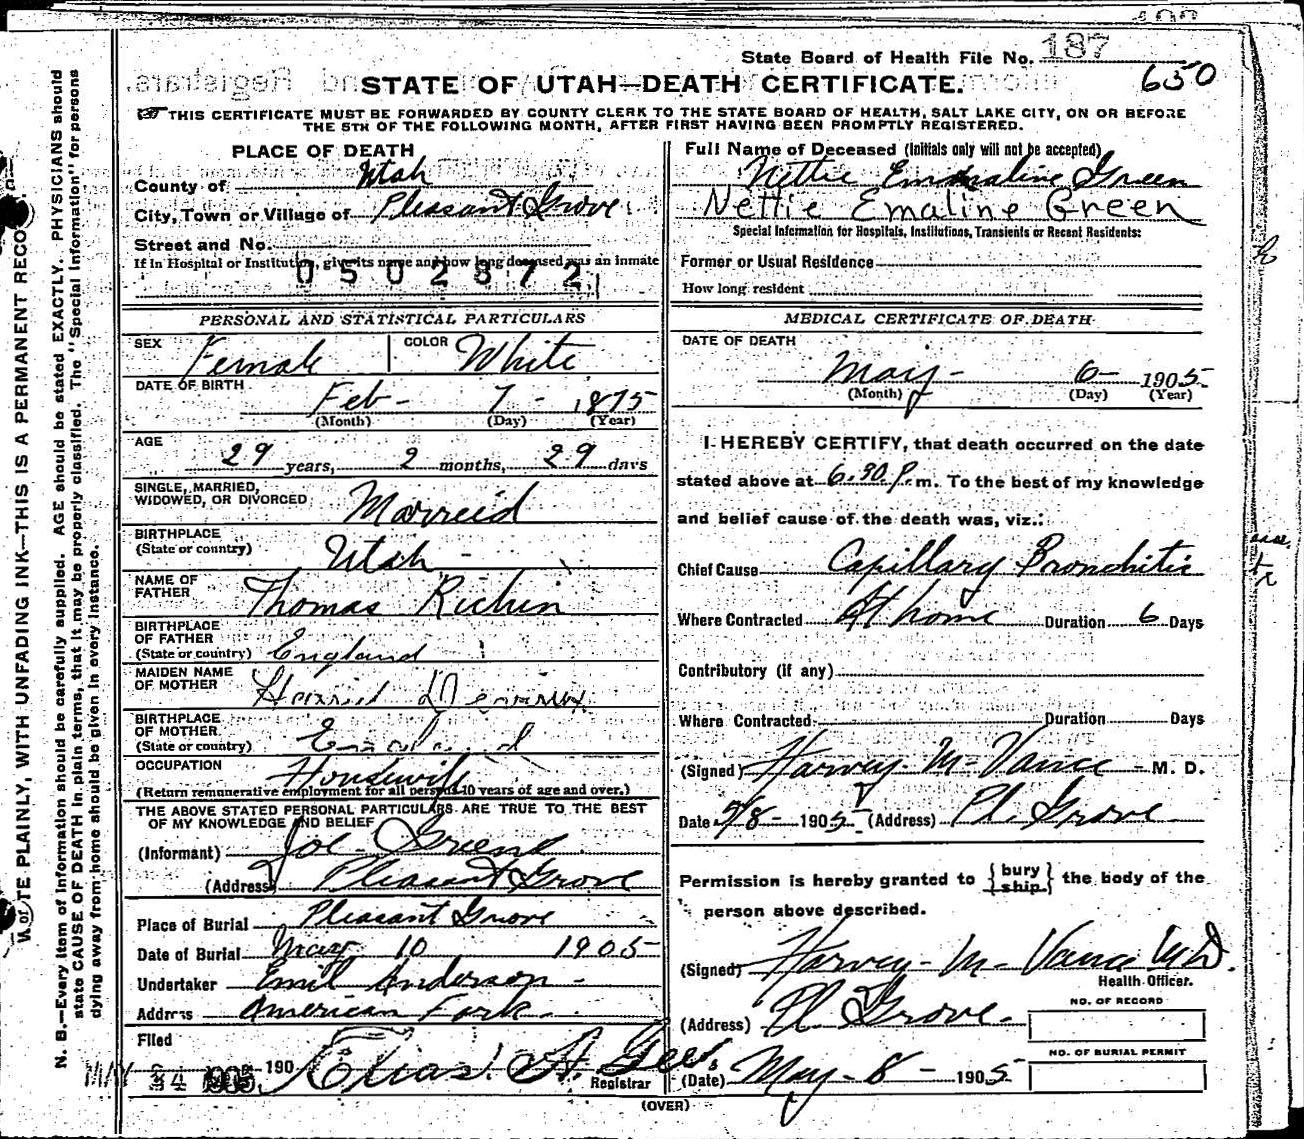 State Board of Health File No. 187
650
STATE OF UTAH—DEATH CERTIFICATE.
THIS CERTIFICATE MUST BE FORWARDED BY COUNTY CLERK TO THE STATE BOARD OF HEALTH, SALT LAKE CITY, ON OR BEFORE
THE 5TH OF THE FOLLOWING MONTH, AFTER FIRST HAVING BEEN PROMPTLY REGISTERED.
PLACE OF DEATH
County of Utah
City, Town or Village of Pleasant Grove
Street and No.
If in Hospital or Institution, give its name and how long deceased was an inmate
0502872
Full Name of Deceased (Initials only will not be accepted)
Nettie Emmaline Green
Nettie Emaline Green
Special Information for Hospitals, Institutions, Transients or Recent Residents:
Former or Usual Residence
How long resident
PERSONAL AND STATISTICAL PARTICULARS
SEX Female COLOR White
DATE OF BIRTH
Feb- 7- 1875
(Month) (Day) (Year)
AGE
29 years, 2 months, 29 days
SINGLE, MARRIED,
WIDOWED, OR DIVORCED Marreid
BIRTHPLACE
(State or country) Utah
NAME OF
FATHER Thomas Richin
BIRTHPLACE
OF FATHER
(State or country) England
MAIDEN NAME
OF MOTHER
BIRTHPLACE
OF MOTHER
(State or country) England
OCCUPATION Housewife
(Return remunerative employment for all persons 10 years of age and over.)
THE ABOVE STATED PERSONAL PARTICULARS ARE TRUE TO THE BEST
OF MY KNOWLEDGE AND BELIEF
(Informant) Joe Greene
(Address) Pleasant Grove
Place of Burial Pleasant Grove
Date of Burial May 10 1905
Undertaker Emil Anderson
Address American Fork
Filed
MAY 24 1905 190 Elias A. Gee.
Registrar
MEDICAL CERTIFICATE OF DEATH
DATE OF DEATH
May- 6- 1905
(Month) (Day) (Year)
I HEREBY CERTIFY, that death occurred on the date
stated above at 6.30 P. m. To the best of my knowledge
and belief cause of the death was, viz.:
Chief Cause Capillary Bronchitis
Where Contracted At home Duration 6 Days
Contributory (if any)
Where Contracted Duration Days
(Signed) Harvey M- Vance - M. D.
Date 5/8- 1905 (Address) Pl. Grove
Permission is hereby granted to {bury ship} the body of the
person above described.
(Signed) Harvey- M- Vance MD.
Health Officer.
(Address) Pl. Grove-
NO. OF RECORD
NO. OF BURIAL PERMIT
(Date) May- 8- 1905
(OVER)
WRITE PLAINLY, WITH UNFADING INK—THIS IS A PERMANENT RECO
N. B.—Every item of information should be carefully supplied. AGE should be stated EXACTLY. PHYSICIANS should
state CAUSE OF DEATH in plain terms, that it may be properly classified. The "Special Information" for persons
dying away from home should be given in every instance.